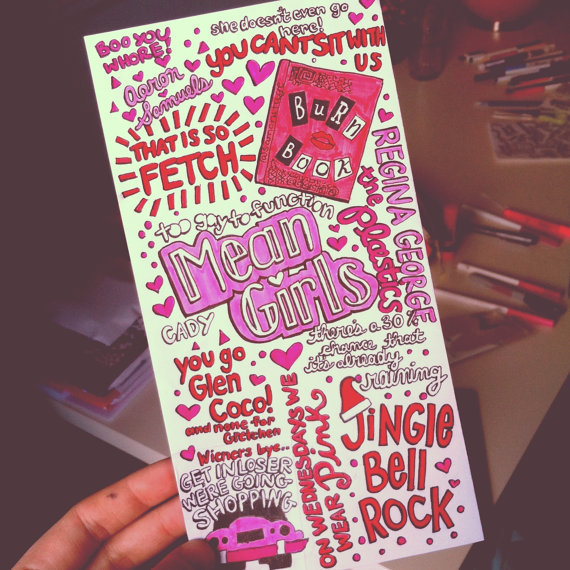 BOO YOU
WHORE!
she doesn't even go
here!
YOU CANT SIT WITH
US
Aaron
Samuels
THAT IS SO
FETCH
BURN
BOOK
REGINA GEORGE
the plastics
too gay to function
Mean
Girls
CADY
there's a 30%
chance that
it's already
raining
you go
Glen
Coco!
and none for
Gretchen
Wieners bye..
GET IN LOSER
WERE GOING
SHOPPING
ON WEDNESDAYS WE
WEAR pink
JiNGLE
BELL
ROCK